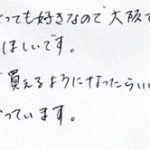 とっても好きなので大阪で
ほしいです。
買えるようになったらいい
っています。